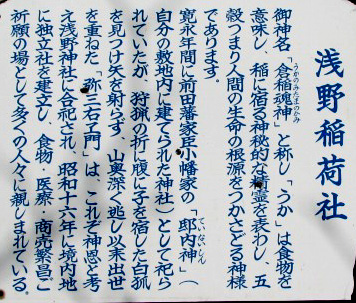 浅野稲荷社
御神名「倉稲魂神」と称し「うか」は食物を
うかのみたまのかみ
意味し、稲に宿る神秘的な精霊を表わし、五
穀つまり人間の生命の根源をつかさどる神様
であります。
寛永年間に前田藩家臣小幡家の「邸内神」(
ていないしん
自分の敷地内に建てられた神社)として祀ら
れていたが、狩猟の折に腹に子を宿した白狐
を見つけ矢を射らず、山奥深く逃し以来出世
を重ねた「弥三右ェ門」は、これぞ神恩と考
え浅野神社に合祀され、昭和十六年に境内地
に独立社を建立し、食物・医療・商売繁昌ご
祈願の場として多くの人々に親しまれている。